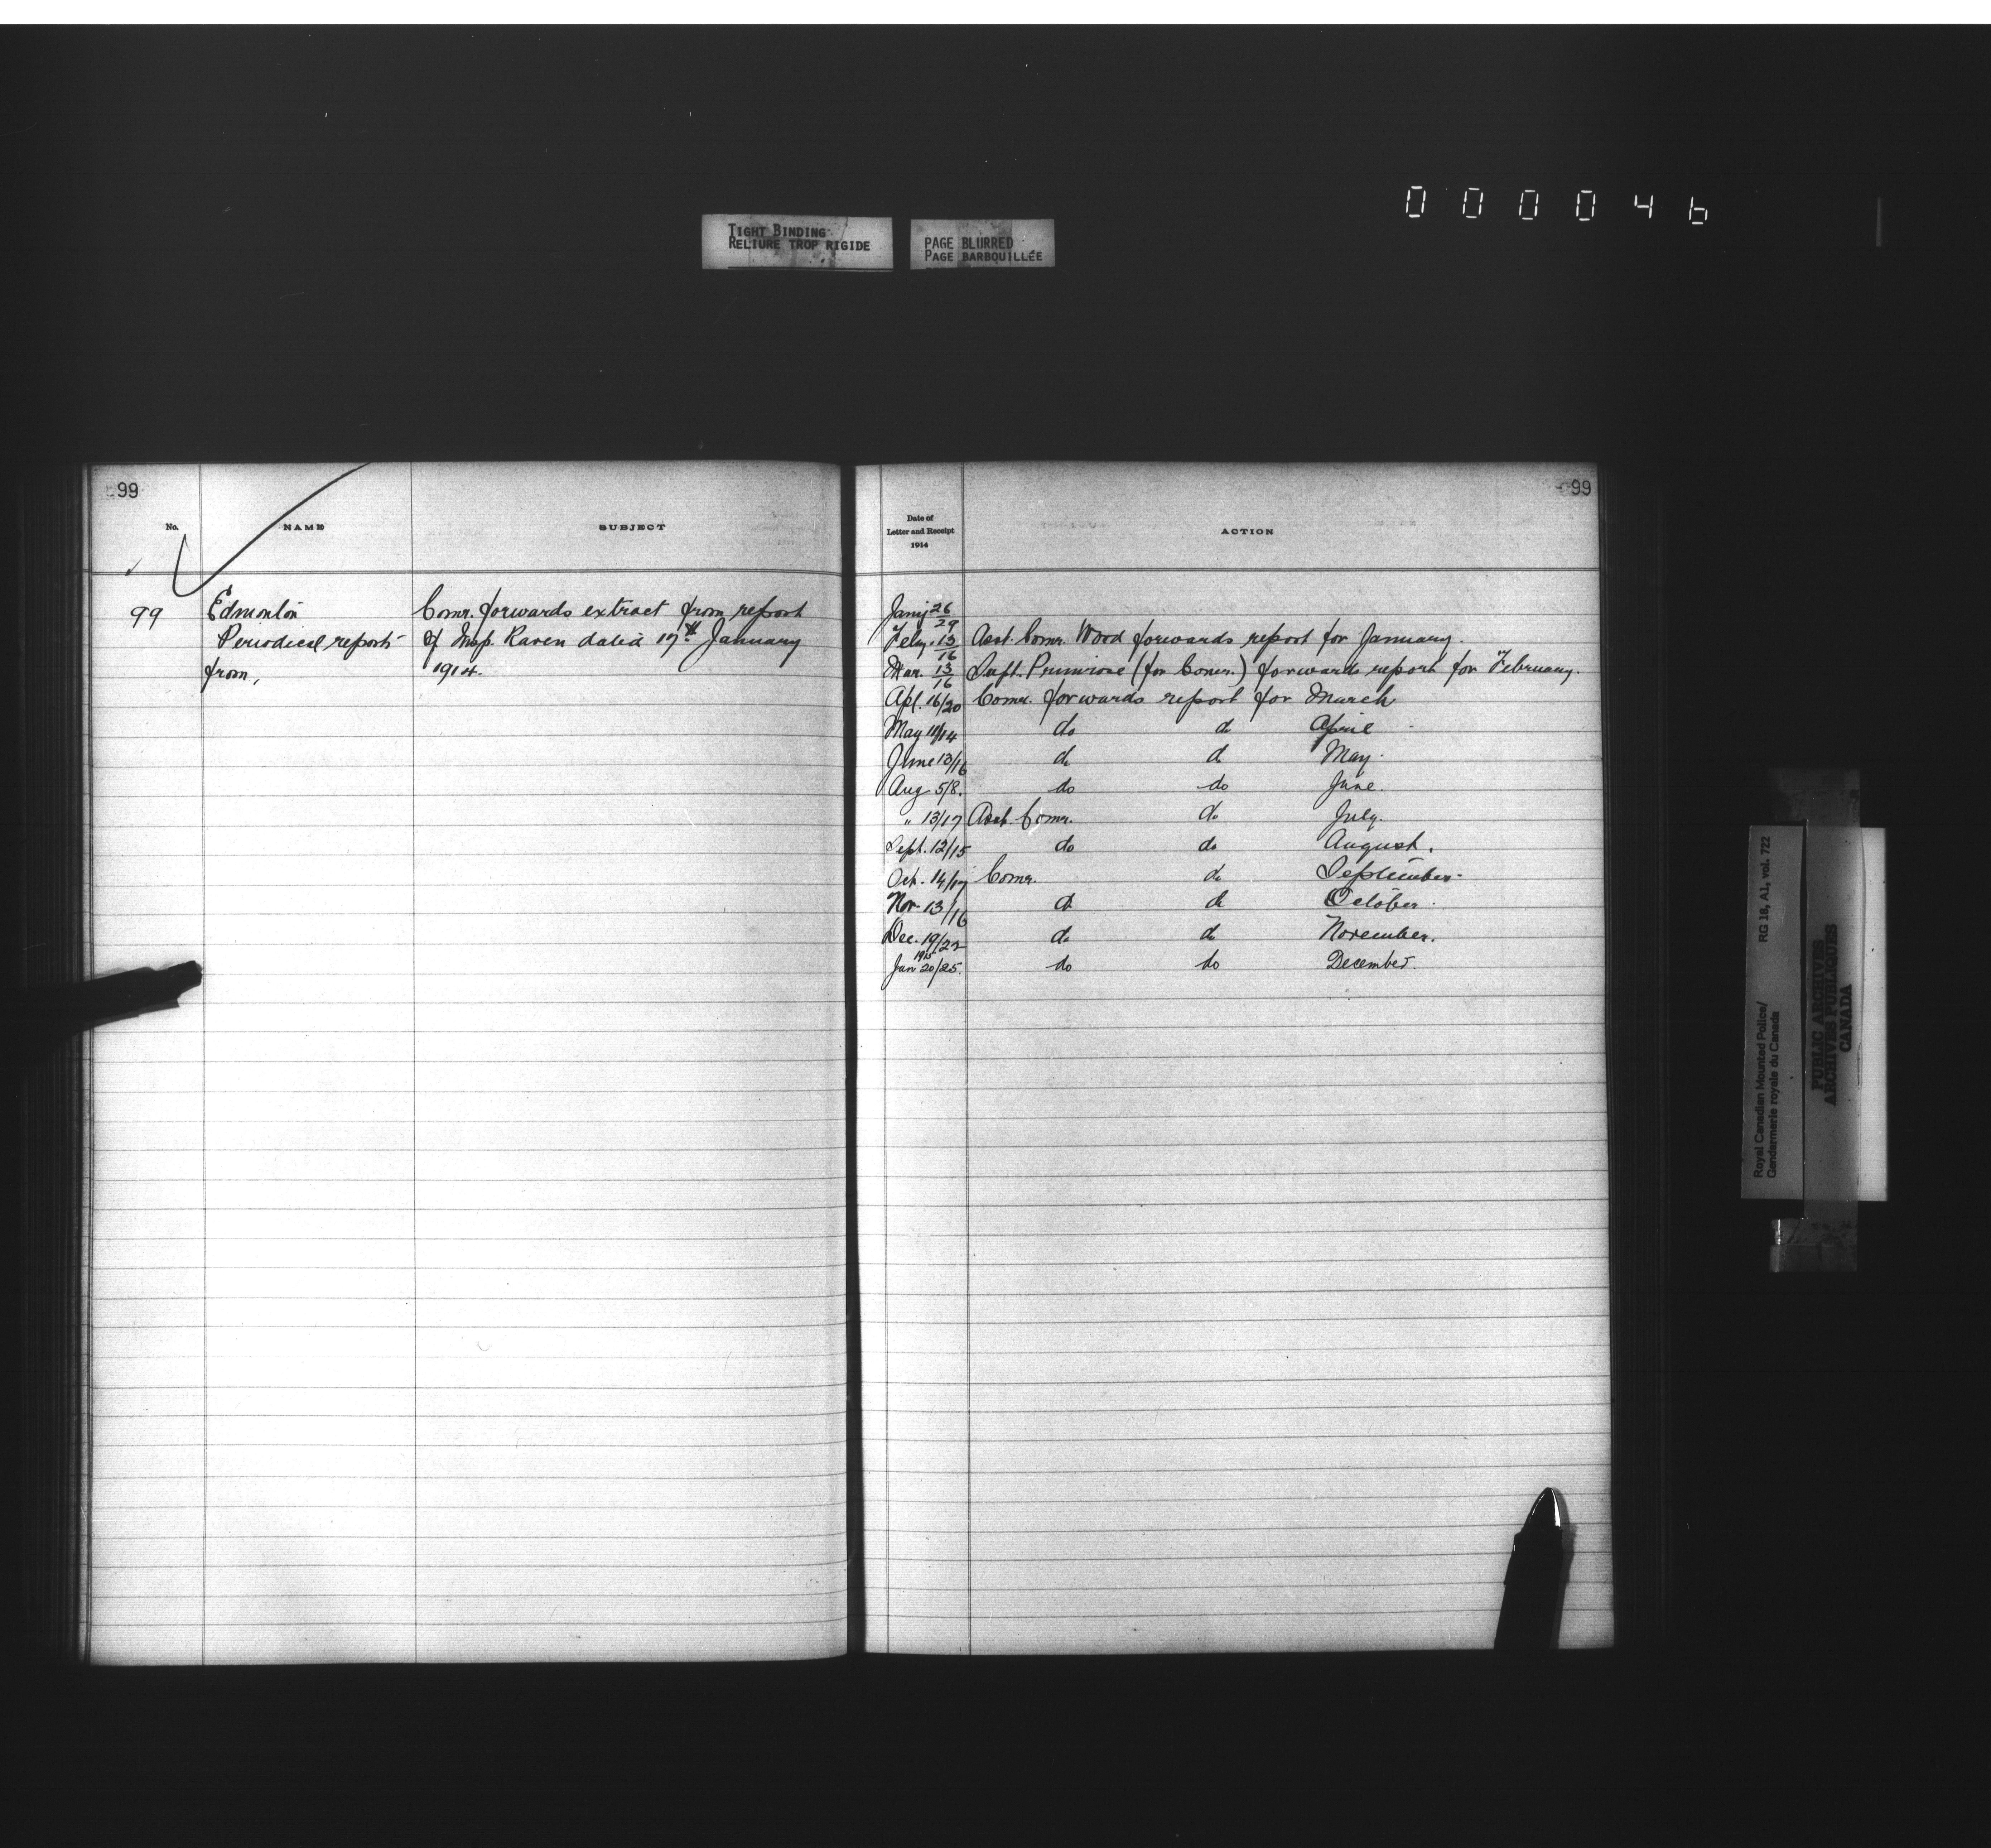 000046
TIGHT BINDING
RELIURE TROP RIGIDE
PAGE BLURRED
PAGE BARBOUILLÉE
99
No.
NAME
SUBJECT
99 Edmonton Comr. forwards extract from report
Periodical reports of Insp. Raven dated 17th January
from, 1914.
99
Date of
Letter and Receipt
1914
ACTION
Jany 26/29
Feby. 13/16 Asst. Comr. Wood forwards report for January.
Mar. 13/16 Supt. Primrose (for Comr.) forwards report for February.
Apl. 16/20 Comr. forwards report for March
May 11/14 do do April
June 13/16 do do May.
Aug 5/8. do do June.
" 13/17 Asst. Comr. do July.
Sept. 12/15 do do August.
Oct. 14/17 Comr. do September
Nov. 13/16 do do October.
Dec. 19/22 do do November.
1915
Jan 20/25. do do December.
Royal Canadian Mounted Police/ RG 18, A1, vol. 722
Gendarmerie royale du Canada
PUBLIC ARCHIVES
ARCHIVES PUBLIQUES
CANADA